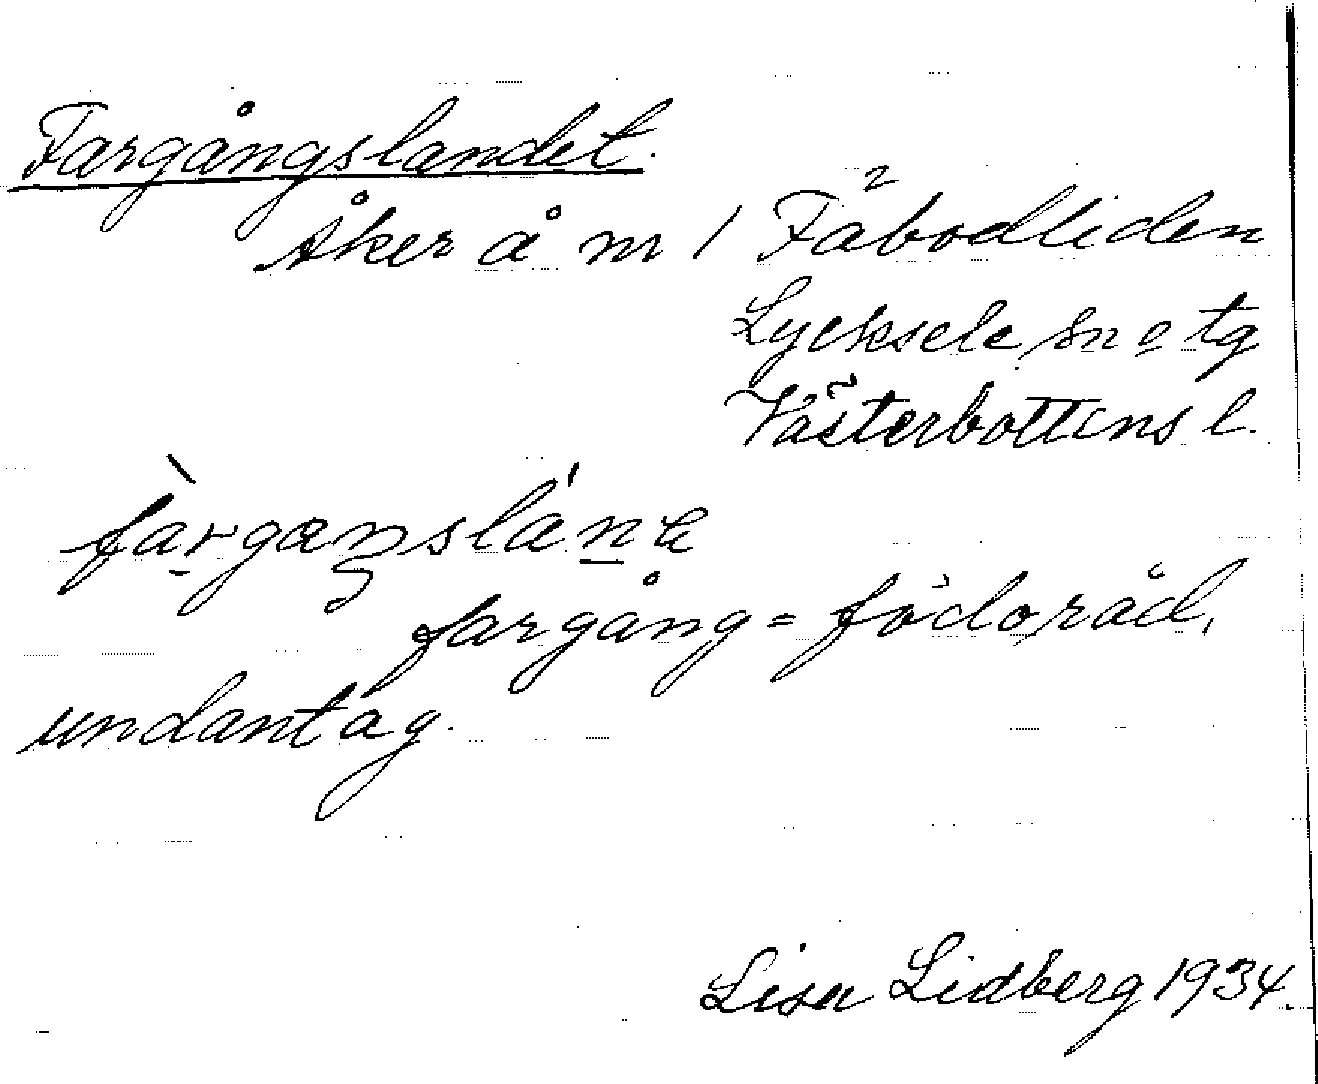 Fargångslandet.
Åker å nr 1 Fäbodliden
Lycksele sn o tg
Västerbottens l.
fàrgaŋslánḙ
fargång = födoråd,
undantag.
Lisa Lidberg 1934.